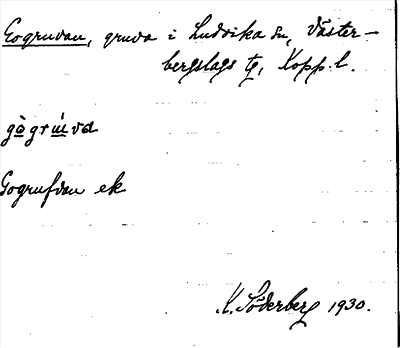 Gogruvan, gruva i Ludvika sn, Väster-
bergslags tg, Kopp. l.
gògrúvɑ
Gogrufvan ek
K. Söderberg 1930.